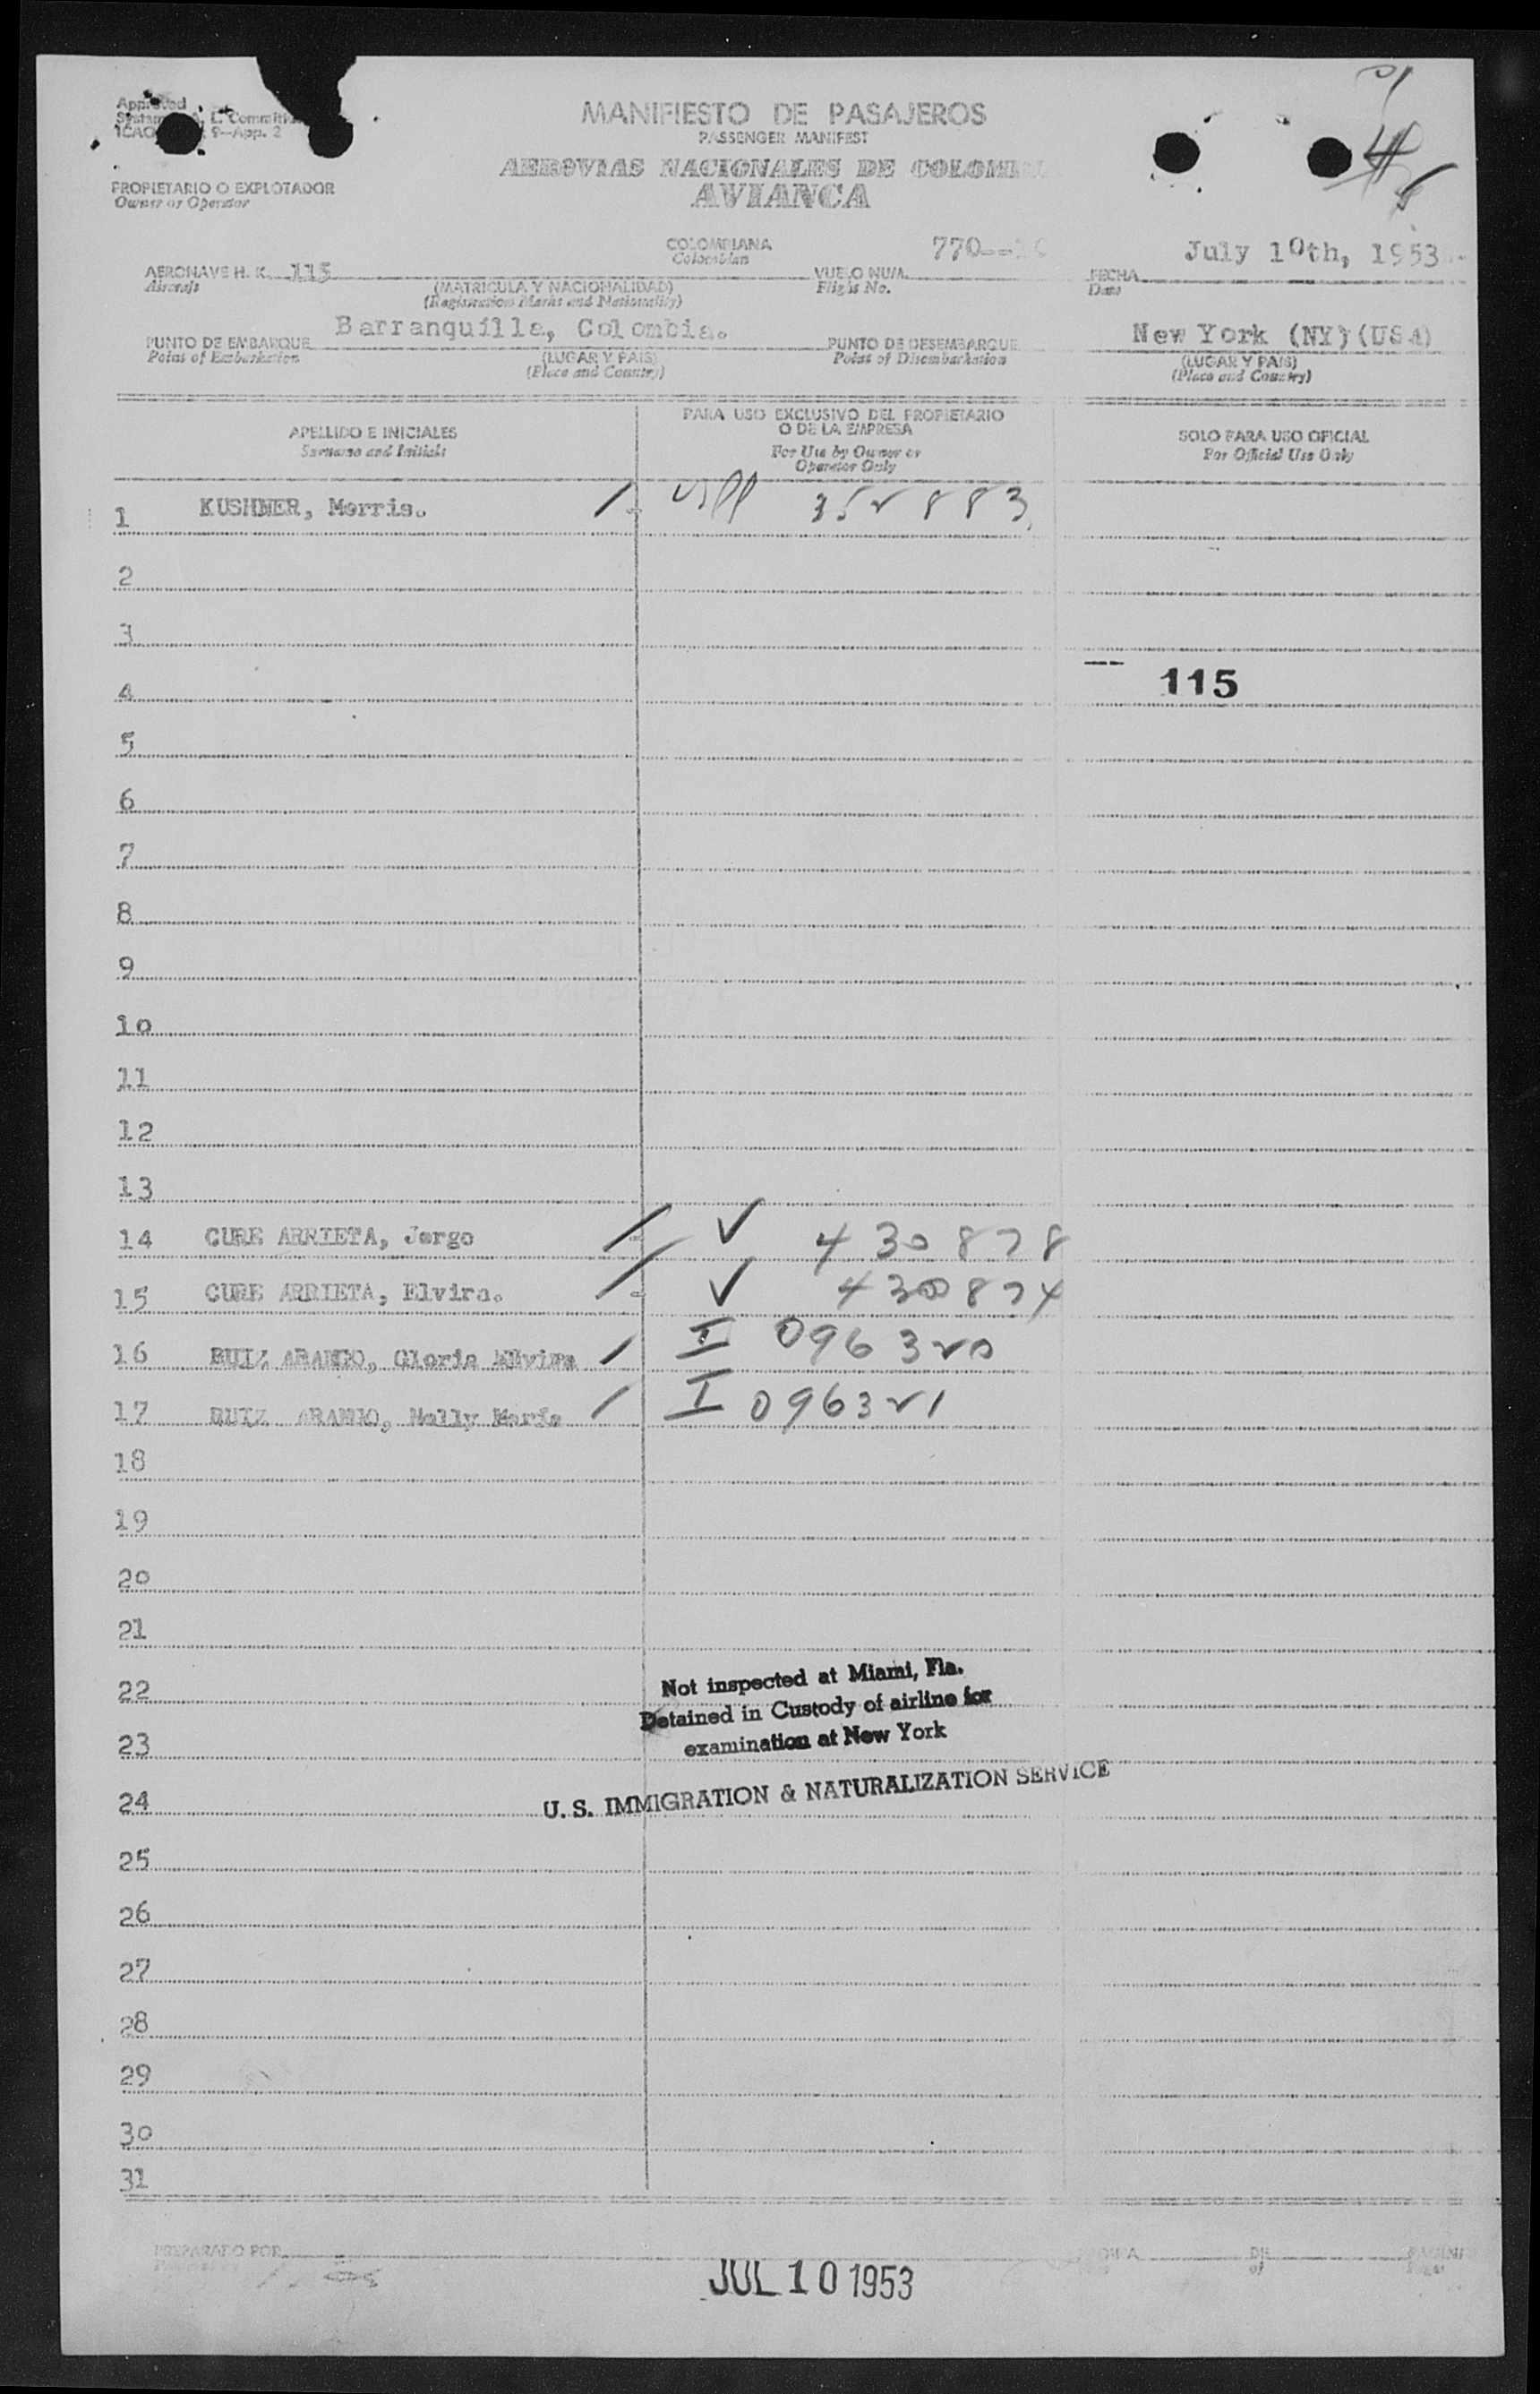 Approved
MANIFIESTO DE PASAJEROS
PASSENGER MANIFEST
ICAO 9—App. 2
AEROVIAS NACIONALES DE
AVIANCA
PROPIETARIO O EXPLOTADOR
Owner or Operator
COLOMBIANA
Colombian
770
July 10th, 1953
AERONAVE H. K. 115
Aircraft
(MATRICULA Y NACIONALIDAD)
(Registration Marks and Nationality)
VUELO NUM.
Flight No.
FECHA
Date
Barranquilla, Colombia.
New York (NY)(USA)
PUNTO DE EMBARQUE
Point of Embarkation
(LUGAR Y PAIS)
(Place and Country)
PUNTO DE DESEMBARQUE
Point of Disembarkation
(LUGAR Y PAIS)
(Place and Country)
APELLIDO E INICIALES
Surname and Initials
PARA USO EXCLUSIVO DEL PROPIETARIO
O DE LA EMPRESA
For Use by Owner or
Operator Only
SOLO PARA USO OFICIAL
For Official Use Only
1 KUSHNER, Morris. 352883
2
3
4 115
5
6
7
8
9
10
11
12
13
14 CURE ARRIETA, Jorge ✓ 430878
15 CURE ARRIETA, Elvira. ✓ 430874
16 RUIZ ARANGO, Gloria I 096320
17 RUIZ ARANGO, Maria I 096321
18
19
20
21
22
23
24
25
26
27
28
29
30
31
Not inspected at Miami, Fla.
Detained in Custody of airline for
examination at New York
U. S. IMMIGRATION & NATURALIZATION SERVICE
PREPARADO POR
JUL 10 1953